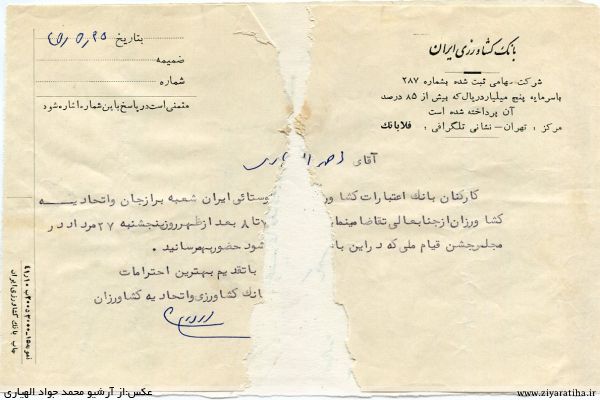 بانک کشاورزی ایران
شرکت سهامی ثبت شده بشماره ۲۸۷
باسرمایه پنج میلیارد ریال که بیش از ۸۵ درصد
آن پرداخته شده است
مرکز : تهران – نشانی تلگرافی : فلابانک
بتاریخ
ضمیمه
شماره
متمنی است در پاسخ باین شماره اشاره شود
آقای
کارکنان بانک اعتبارات کشاور وستائی ایران شعبه برازجان واتحادیه
کشاورزان از جنابعالی تقاضا مینما ۷ تا ۸ بعد از ظهر روز پنجشنبه ۲۷ مرداد در
مجلس جشن قیام ملی که در این با شود حضور بهم رسانید .
با تقدیم بهترین احترامات
بانک کشاورزی واتحادیه کشاورزان
چاپ بانک کشاورزی ایران
عکس:از آرشیو محمد جواد الهیاری
www.ziyaratiha.ir